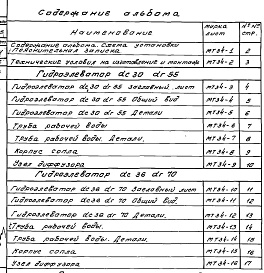 Содержание альбома
Наименование
марка лист
№№ стр.
Содержание альбома. Схема установки
Пояснительная записка МТЭ4-1 2
Технические условия на изготовление и монтаж МТЭ4-2 3
Гидроэлеватор dc 30 dг 55
Гидроэлеватор dc 30 dг 55 Заглавный лист МТЭ4-3 4
Гидроэлеватор dc 30 dг 55 Общий вид МТЭ4-4 5
Гидроэлеватор dc 30 dг 55 Детали МТЭ4-5 6
Труба рабочей воды МТЭ4-6 7
Труба рабочей воды Детали МТЭ4-7 8
Корпус сопла МТЭ4-8 9
Узел диффузора МТЭ4-9 10
Гидроэлеватор dc 36 dг 70
Гидроэлеватор dc 36 dг 70 Заглавный лист МТЭ4-10 11
Гидроэлеватор dc 36 dг 70 Общий вид. МТЭ4-11 12
Гидроэлеватор dc 36 dг 70 Детали. МТЭ4-12 13
Труба рабочей воды. МТЭ4-13 14
Труба рабочей воды. Детали. МТЭ4-14 15
Корпус сопла МТЭ4-15 16
Узел диффузора МТЭ4-16 17